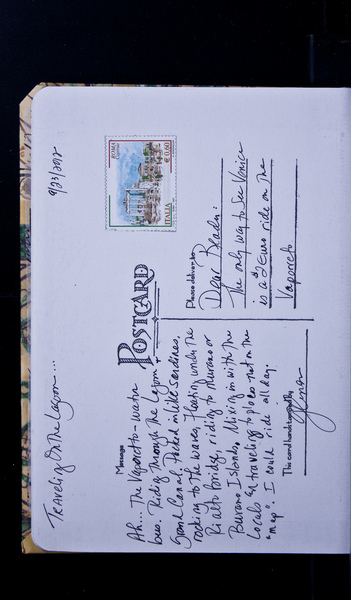 Traveling On the Lagoon...
9/23/2012
ROMA
ITALIA € 0,60
POSTCARD
Message
Ah... The Vaporetto - water
bus. Riding through the Lagoon
Grand Canal. Packed in like Sardines,
rocking to the waves, floating under the
Rialto bridge, riding to Murano or
Burano Islands. Mixing in with the
Locals & traveling to places not on the
"map". I could ride all day.
This card handstamped by
Please deliver to
Dear Reader:
The only way to See Venice
is a 2 Euro ride on the
Vaporetto